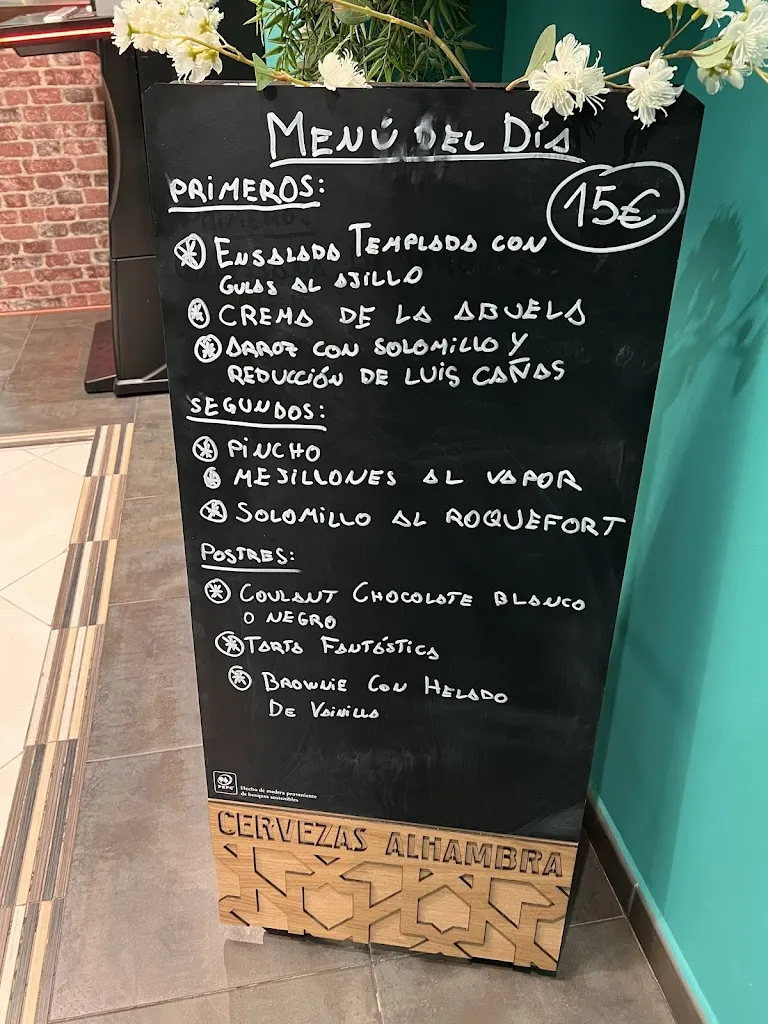 MENÚ DEL DÍA
PRIMEROS:
15€
ENSALADA TEMPLADA CON
GULAS AL AJILLO
CREMA DE LA ABUELA
ARROZ CON SOLOMILLO Y
REDUCCIÓN DE LUIS CAÑAS
SEGUNDOS:
PINCHO
MEJILLONES AL VAPOR
SOLOMILLO AL ROQUEFORT
POSTRES:
COULANT CHOCOLATE BLANCO
O NEGRO
TARTA FANTÁSTICA
BROWNIE CON HELADO
DE VAINILLA
PEFC
Hecho de madera proveniente
de bosques sostenibles
CERVEZAS ALHAMBRA